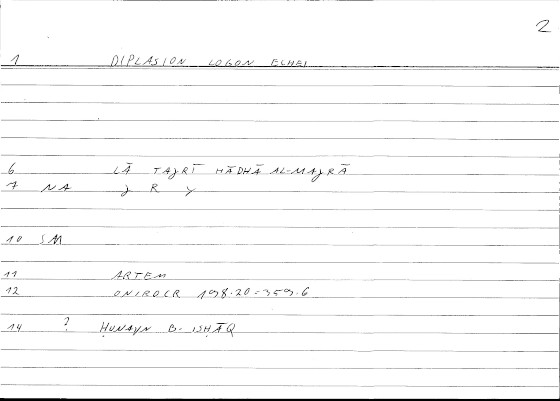 2
1 DIPLASION LOGON ECHEI
6 LĀ TAJRĪ HĀDHĀ AL-MAJRĀ
7 NA J R Y
10 SM
11 ARTEM
12 ONIROCR 198.20-359.6
14 ? ḤUNAYN B- ISḤĀQ